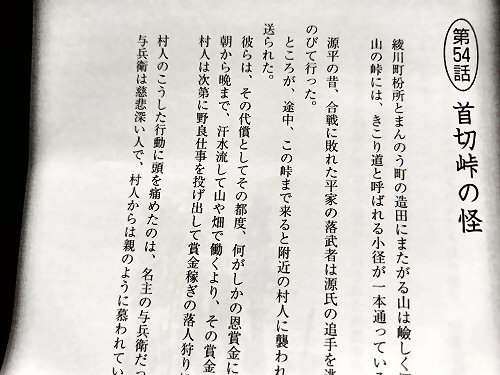 第54話 首切峠の怪
綾川町枌所とまんのう町の造田にまたがる山は嶮しく
山の峠には、きこり道と呼ばれる小径が一本通っている
源平の昔、合戦に敗れた平家の落武者は源氏の追手を逃
のびて行った。
ところが、途中、この峠まで来ると附近の村人に襲われ
送られた。
彼らは、その代償としてその都度、何がしかの恩賞金に
朝から晩まで、汗水流して山や畑で働くより、その賞金
村人は次第に野良仕事を投げ出して賞金稼ぎの落人狩りに
村人のこうした行動に頭を痛めたのは、名主の与兵衛だっ
与兵衛は慈悲深い人で、村人からは親のように慕われてい